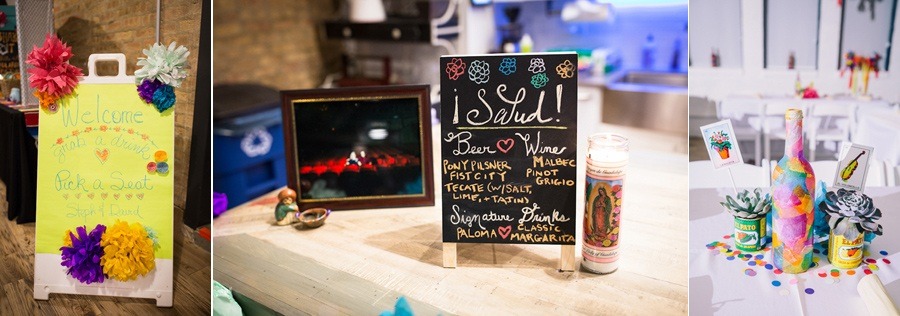 Welcome
grab a drink
Pick a Seat
Steph & David
¡Salud!
Beer ♡ Wine
PONY PILSNER
FIST CITY
TECATE (W/SALT,
LIME, + TAJIN)
MALBEC
PINOT
GRIGIO
Signature Drinks
PALOMA ♡ CLASSIC
MARGARITA
EL PATO